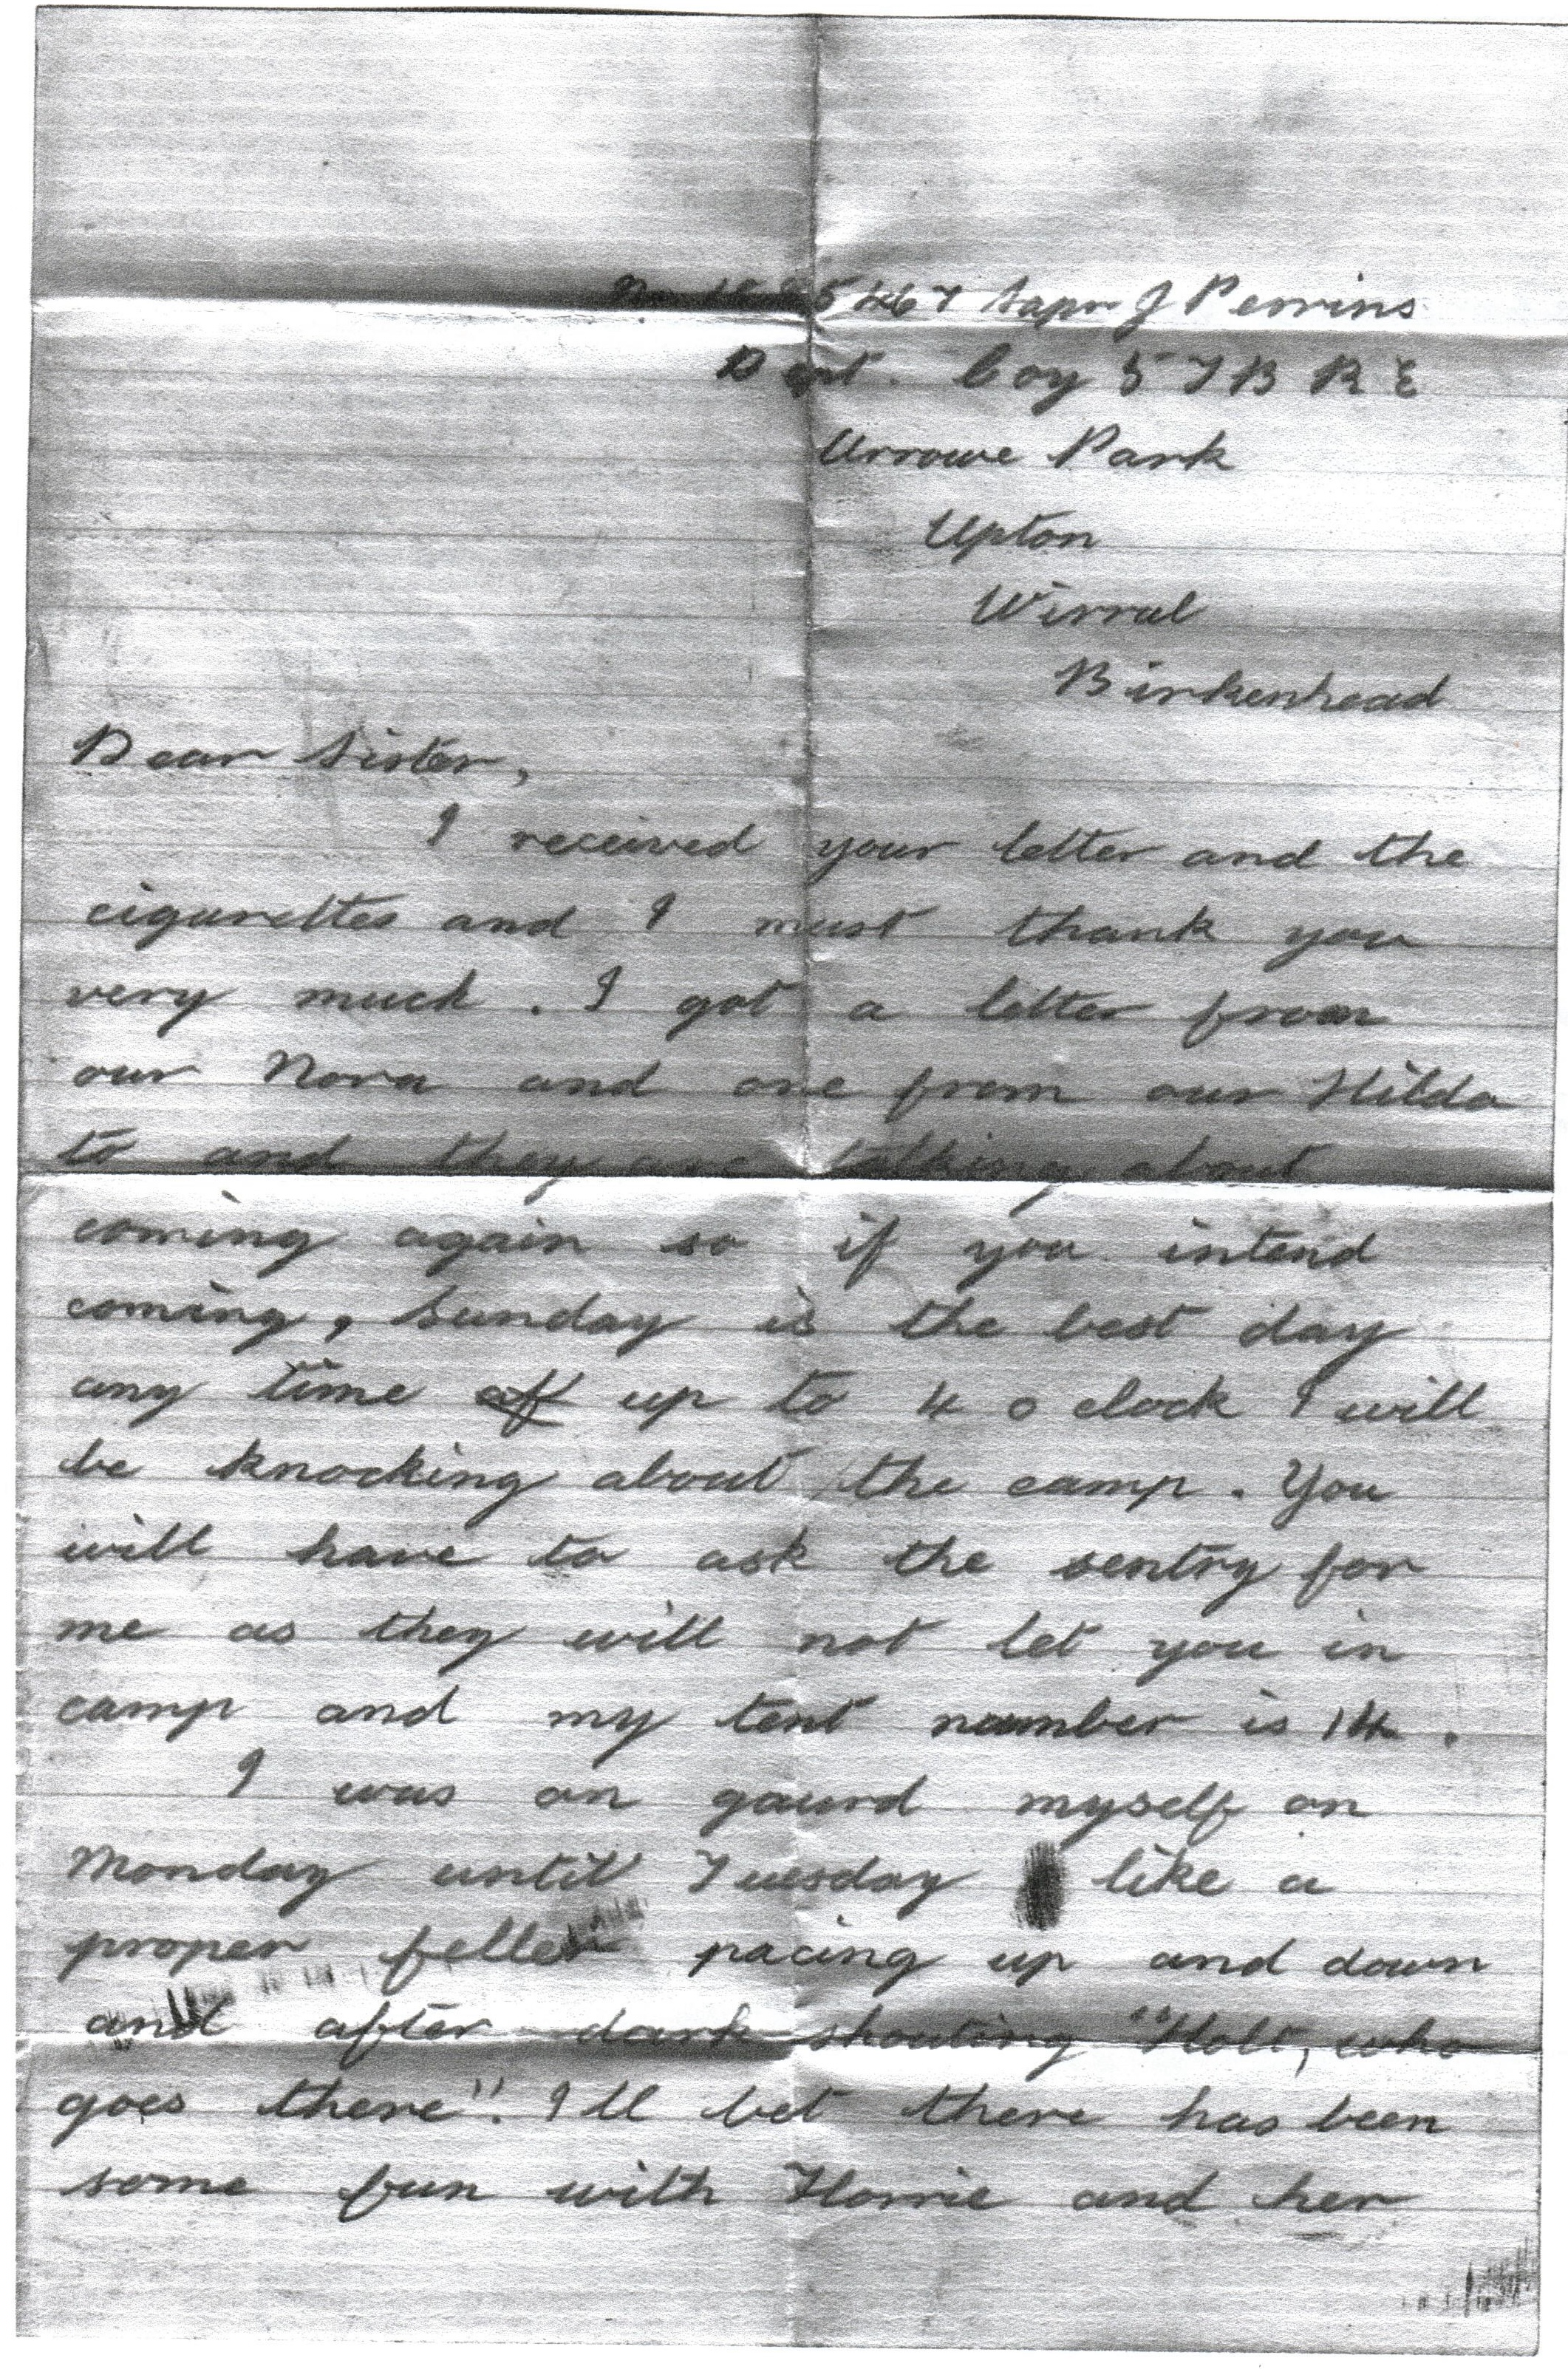 Sapr J Perrins
Coy 5 T B R E
Arrowe Park
Upton
Wirral
Birkenhead
Dear Sister,
I received your letter and the
cigarettes and I must thank you
very much. I got a letter from
our Nora and one from our Hilda
to and they are talking about
coming again so if you intend
coming, Sunday is the best day
any time up to 4 o clock I will
be knocking about the camp. You
will have to ask the sentry for
me as they will not let you in
camp and my tent number is 14.
I was on gaurd myself on
Monday until Tuesday like a
proper feller pacing up and down
and after dark shouting "Holt, who
goes there". I ll bet there has been
some fun with Florrie and her